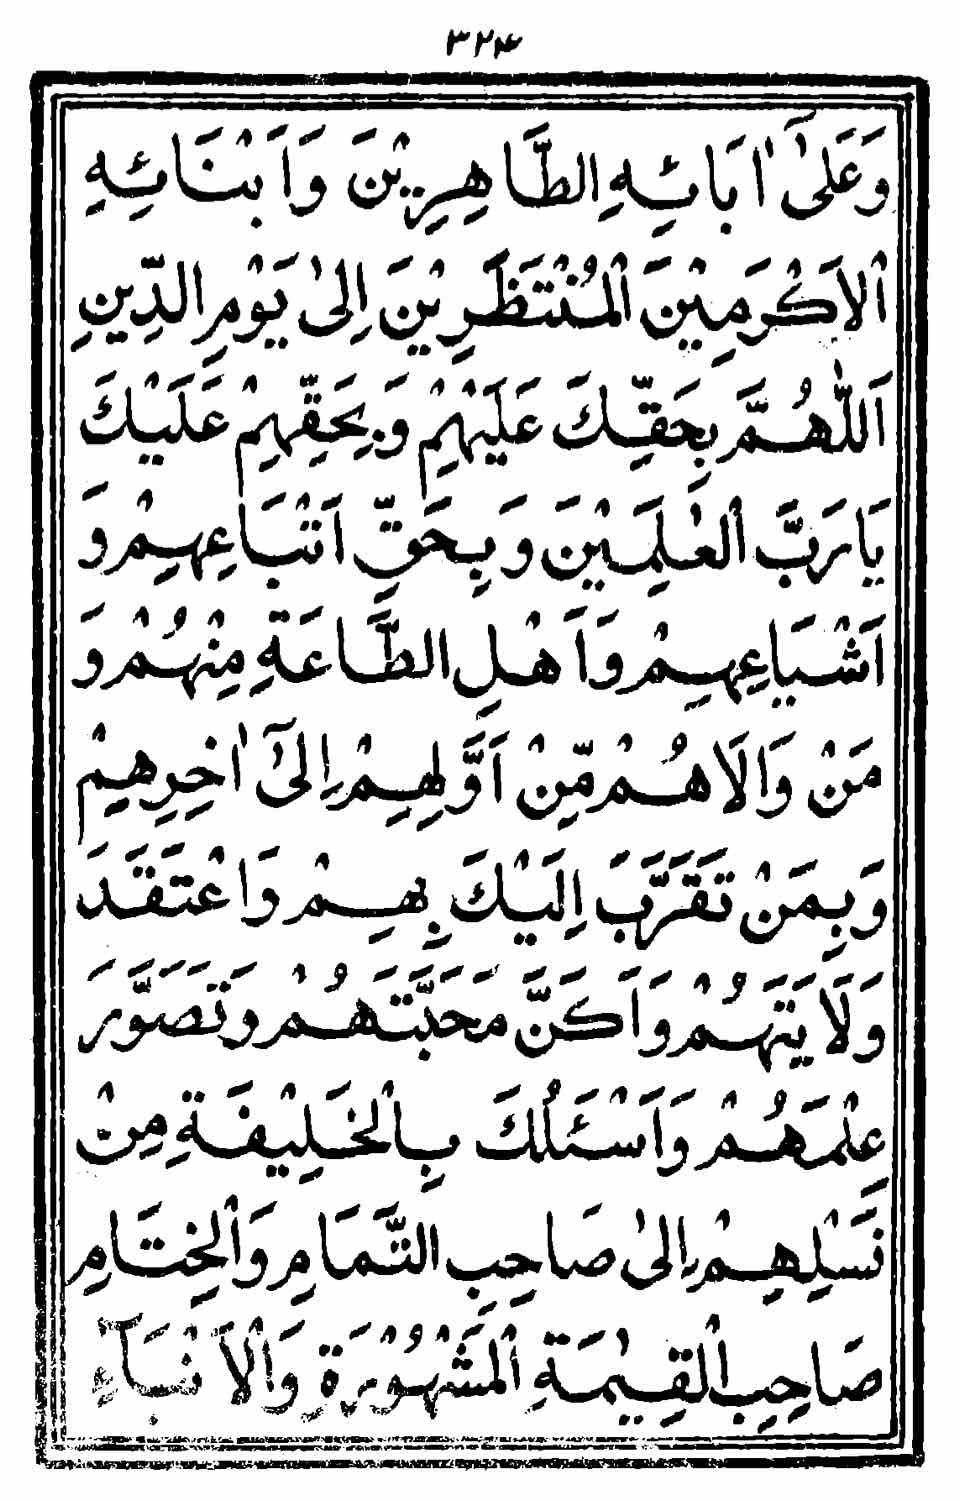 ۳۲۴
وَعَلىٰٓ اٰبَائِهِ الطَّاهِرِيْنَ وَاَبْنَائِهِ
الْاَكْرَمِيْنَ الْمُنْتَظَرِيْنَ اِلىٰ يَوْمِ الدِّيْنِ
اَللّٰهُمَّ بِحَقِّكَ عَلَيْهِمْ وَبِحَقِّهِمْ عَلَيْكَ
يَارَبَّ الْعٰلَمِيْنَ وَبِحَقِّ اَتْبَاعِهِمْ وَ
اَشْيَاعِهِمْ وَاَهْلِ الطَّاعَةِ مِنْهُمْ وَ
مَنْ وَالَاهُمْ مِّنْ اَوَّلِهِمْ اِلىٰٓ اٰخِرِهِمْ
وَبِمَنْ تَقَرَّبَ اِلَيْكَ بِهِمْ وَاعْتَقَدَ
وَلَايَتَهُمْ وَاَكَنَّ مَحَبَّتَهُمْ وَتَصَوَّرَ
عِلْمَهُمْ وَاَسْئَلُكَ بِالْخَلِيْفَةِ مِنْ
نَّسْلِهِمْ اِلىٰ صَاحِبِ التَّمَامِ وَالْخِتَامِ
صَاحِبِ الْقِيٰمَةِ الْمَشْهُوْرَةِ وَالْاَنْبَآءِ